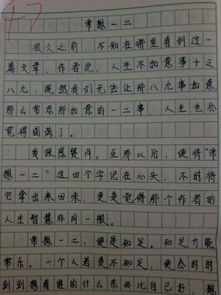 47
常想一二
很久之前，不知在哪里看到过一
篇文章，作者说，人生不如意事十之
八九，既然我们无法让那八九事如意，
那么常思那如意的一二事，人生也会
觉得圆满了。
我深感赞同，至那以后，便将“常
想一二”这四个字记在心头，不时将
它拿出来回味，更是觉得那个作者的
人生智慧非同一般。
常想一二，便是知足。知足方能
常乐，一个人若是不知足，便会时时
刻刻想着谁的什么东西比自己好，